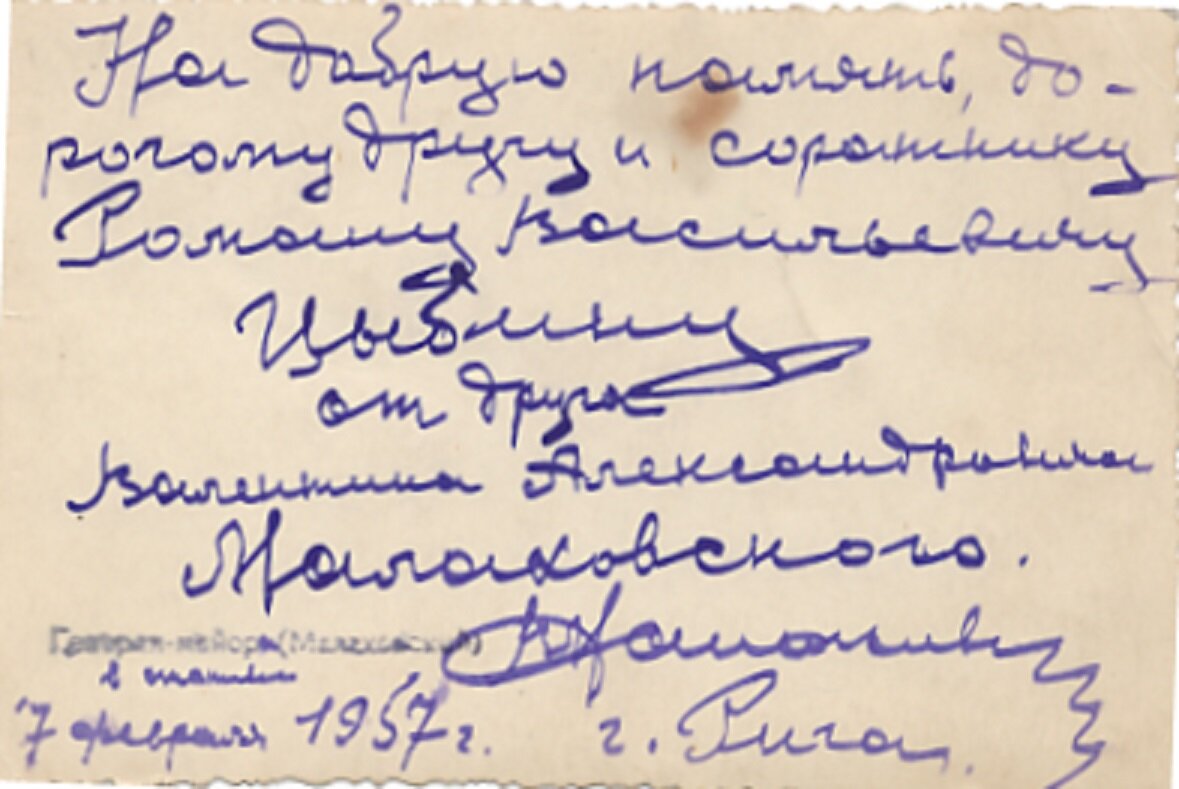 На добрую память, до-
рогому другу и соратнику
Роману Васильевичу
Цыблину
от друга
Валентина Александровича
Малаховского.
Генерал-майора (Малаховский)
в
7 февраля 1957 г. г. Рига.